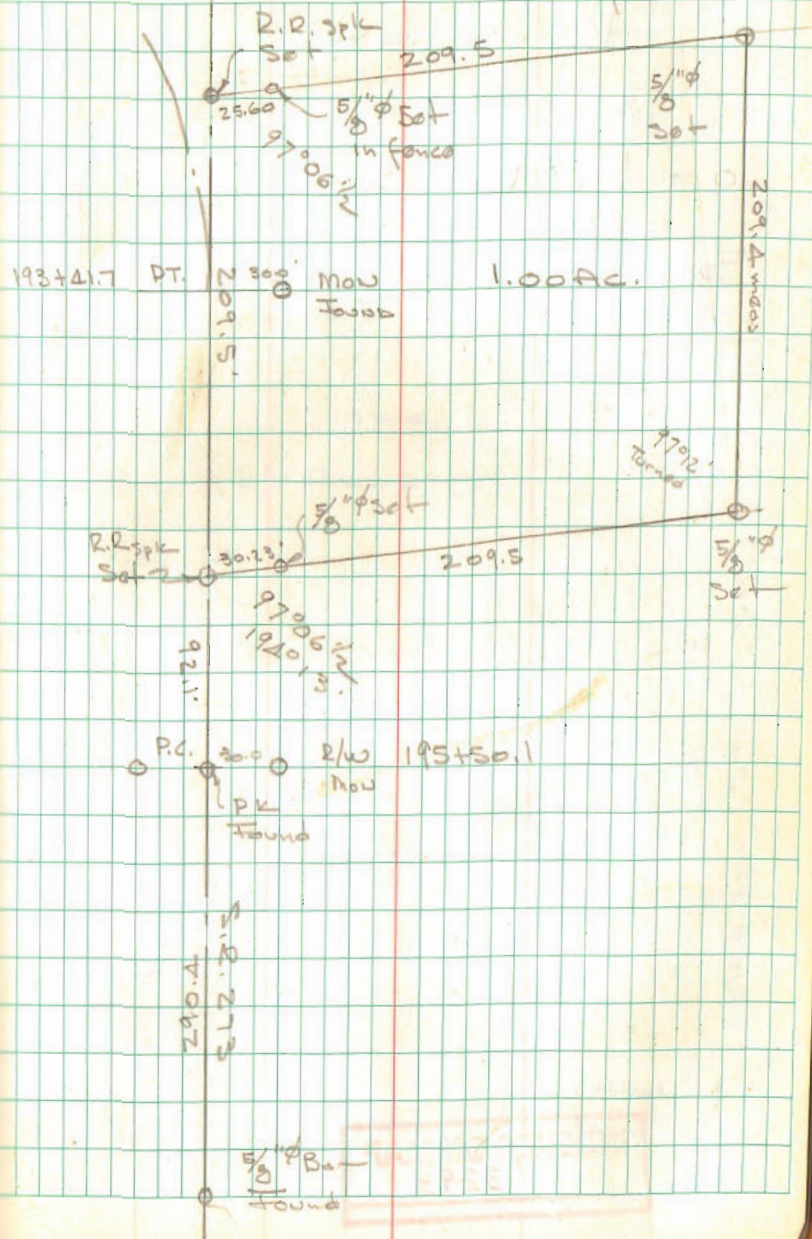 R.R. spk
Set
209.5
25.60
5/8"φ Set
in fence
97°06 1/2
5/8"φ
Set
209.4 meas
193+41.7 P.T.
30.0'
Mon
Found
1.00 Ac.
209.5'
97°12'
Turned
5/8"φ Set
R.R. spk
Set
30.23'
209.5
5/8"φ
Set
97°06 1/2
194°13'
P.C.
30.0
R/W
Mon
195+50.1
PK
Found
S.R. 213
290.4
5/8"φ Bar
Found